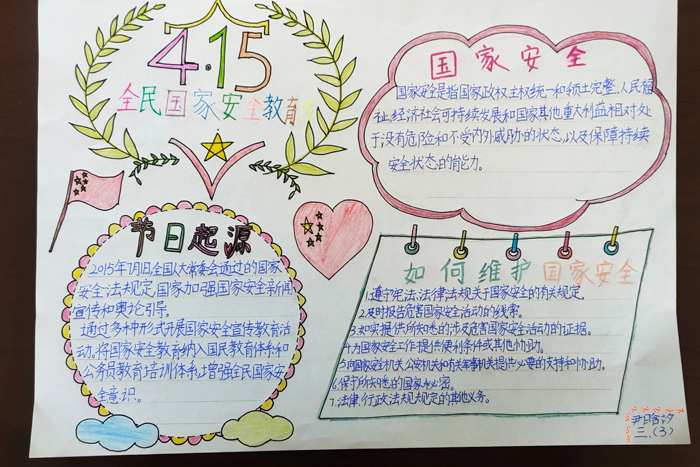 4.15
全民国家安全教育
国家安全
国家安全是指国家政权、主权、统一和领土完整、人民福
祉、经济社会可持续发展和国家其他重大利益相对处
于没有危险和不受内外威胁的状态,以及保障持续
安全状态的能力。
节日起源
2015年7月1日全国人大常委会通过的国家
安全法规定,国家加强国家安全新闻
宣传和舆论引导。
通过多种形式开展国家安全宣传教育活
动,将国家安全教育纳入国民教育体系和
公务员教育培训体系,增强全民国家安
全意识。
如何维护国家安全
1.遵守宪法、法律法规关于国家安全的有关规定。
2.及时报告危害国家安全活动的线索。
3.如实提供所知悉的涉及危害国家安全活动的证据。
4.为国家安全工作提供便利条件或其他协助。
5.向国家安全机关、公安机关和有关军事机关提供必要的支持和协助。
6.保守所知悉的国家秘密。
7.法律、行政法规规定的其他义务。
三.(3)